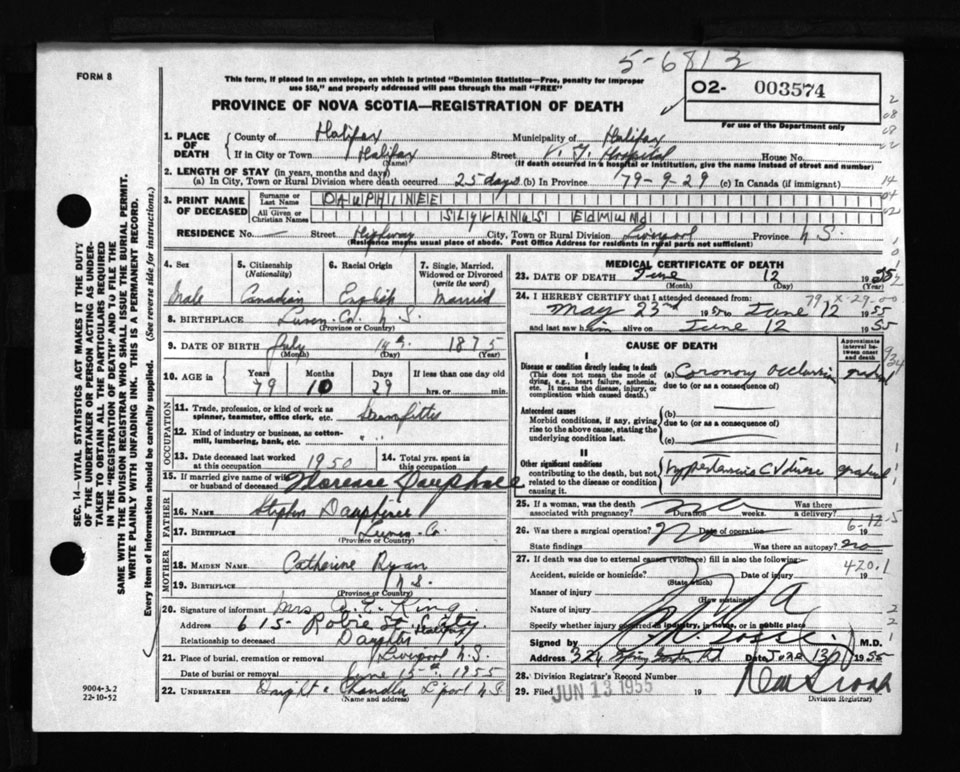 5-6813
FORM 8
This form, if placed in an envelope, on which is printed "Dominion Statistics—Free, penalty for improper
use $50," and properly addressed will pass through the mail "FREE"
02- 003574
For use of the Department only
PROVINCE OF NOVA SCOTIA—REGISTRATION OF DEATH
1. PLACE OF DEATH
County of Halifax Municipality of Halifax
If in City or Town Halifax Street V. G. Hospital House No.
(Name) (If death occurred in a hospital or institution, give the name instead of street and number)
2. LENGTH OF STAY (in years, months and days)
(a) In City, Town or Rural Division where death occurred 25 days (b) In Province 79-9-29 (c) In Canada (if immigrant)
3. PRINT NAME OF DECEASED
Surname or Last Name DAUPHINEE
All Given or Christian Names SLYVANUS EDMUND
RESIDENCE No. — Street Highway City, Town or Rural Division Liverpool Province N.S.
(Residence means usual place of abode. Post Office Address for residents in rural parts not sufficient)
4. Sex Male
5. Citizenship (Nationality) Canadian
6. Racial Origin English
7. Single, Married, Widowed or Divorced (write the word) Married
8. BIRTHPLACE Lunen. Co. N.S.
(Province or Country)
9. DATE OF BIRTH July 14th. 1875
(Month) (Day) (Year)
10. AGE in Years 79 Months 10 Days 29 If less than one day old hrs. or min.
OCCUPATION
11. Trade, profession, or kind of work as spinner, teamster, office clerk, etc. Steamfitter
12. Kind of industry or business, as cotton-mill, lumbering, bank, etc. " "
13. Date deceased last worked at this occupation 1950
14. Total yrs. spent in this occupation
15. If married give name of wife or husband of deceased Dauphinee
FATHER
16. Name Stephen Dauphinee
17. Birthplace Lunen. Co.
(Province or Country)
MOTHER
18. MAIDEN NAME Catherine Ryan
19. BIRTHPLACE N.S.
(Province or Country)
20. Signature of informant Mrs. A. E. King
Address 615 Robie St. City. Halifax
Relationship to deceased Daughter
21. Place of burial, cremation or removal Liverpool N.S.
Date of burial or removal June 15th 1955
22. UNDERTAKER Chandler L'pool N.S.
(Name and address)
MEDICAL CERTIFICATE OF DEATH
23. DATE OF DEATH June 12 1955
(Month) (Day)
24. I HEREBY CERTIFY that I attended deceased from:
May 23rd 1955 to June 12 1955
and last saw him alive on June 12 1955
CAUSE OF DEATH
Approximate interval between onset and death
I
Disease or condition directly leading to death
(This does not mean the mode of dying, e.g., heart failure, asthenia, etc. It means the disease, injury, or complication which caused death.)
(a) Coronary occlusion gradual
due to (or as a consequence of)
Antecedent causes
Morbid conditions, if any, giving rise to the above cause, stating the underlying condition last.
(b) —
due to (or as a consequence of)
(c) —
II
Other significant conditions
contributing to the death, but not related to the disease or condition causing it.
Hypertensive CV disease gradual
25. If a woman, was the death associated with pregnancy? no Duration weeks. Was there a delivery?
6-12-5
26. Was there a surgical operation? No Date of operation 19
State findings Was there an autopsy? no
27. If death was due to external causes (violence) fill in also the following:
420.1
Accident, suicide or homicide? Date of injury 19
(State which)
Manner of injury
(How sustained)
Nature of injury
Specify whether injury occurred in industry, in home, or in public place
Signed by M.D.
Address 324 Spring Garden Rd Date June 13 1955
28. Division Registrar's Record Number
29. Filed JUN 13 1955 19
Division Registrar
SEC. 14—VITAL STATISTICS ACT MAKES IT THE DUTY
OF THE UNDERTAKER OR PERSON ACTING AS UNDER-
TAKER TO OBTAIN ALL THE PARTICULARS REQUIRED
IN THE "REGISTRATION OF DEATH" AND TO FILE THE
SAME WITH THE DIVISION REGISTRAR WHO SHALL ISSUE THE BURIAL PERMIT.
WRITE PLAINLY WITH UNFADING INK. THIS IS A PERMANENT RECORD.
Every item of information should be carefully supplied. (See reverse side for instructions.)
9004-3.2
22-10-52